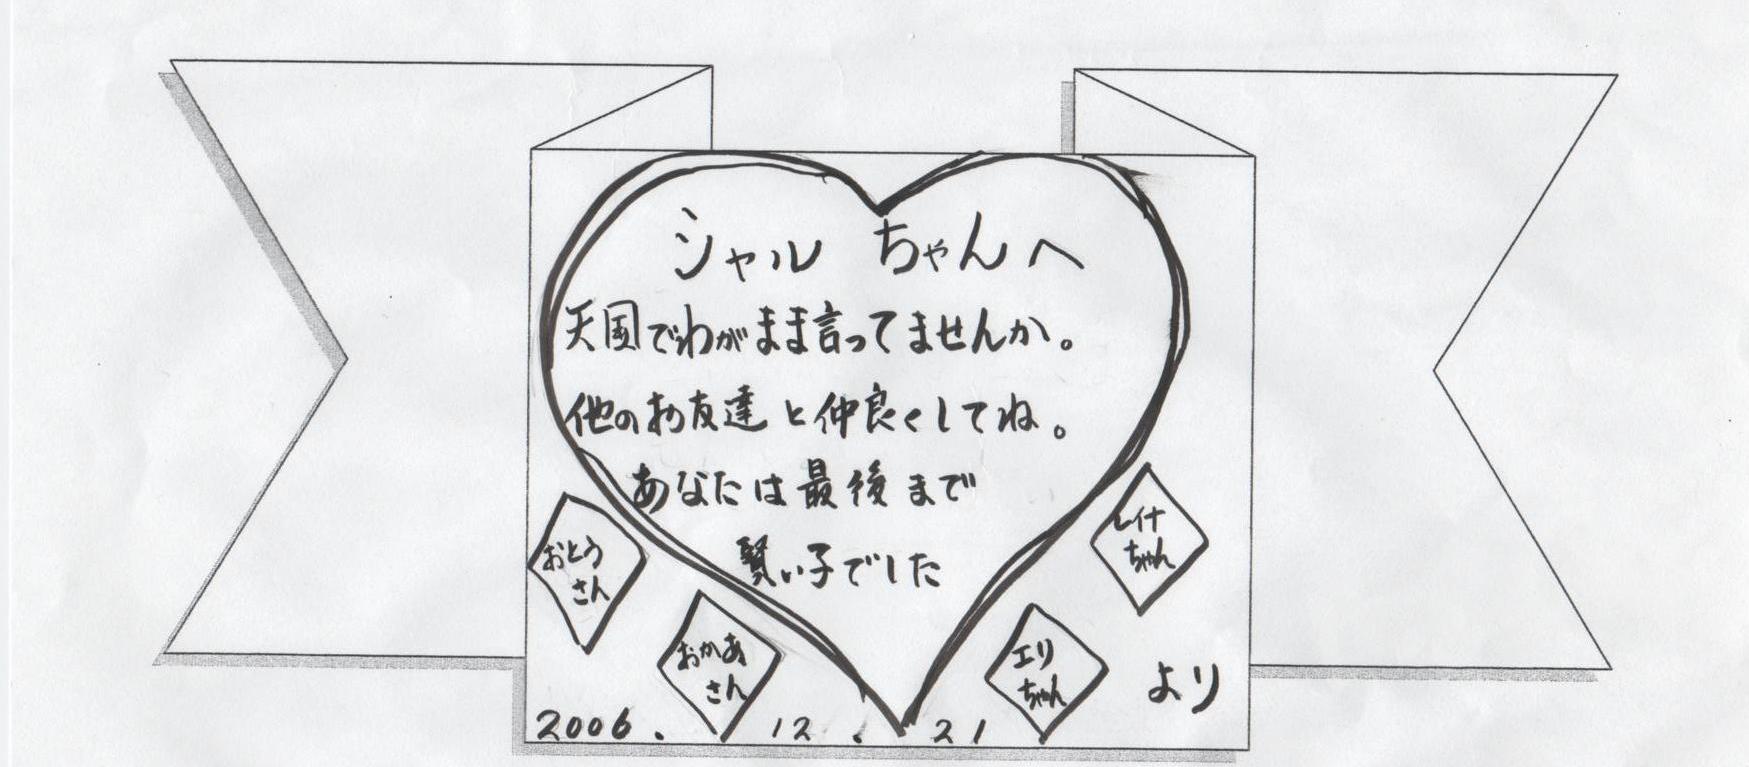 シャル ちゃんへ
天国でわがまま言ってませんか。
他のお友達と仲良くしてね。
あなたは最後まで
賢い子でした
おとう
さん
おかあ
さん
エリ
ちゃん
レイナ
ちゃん
より
2006. 12. 21